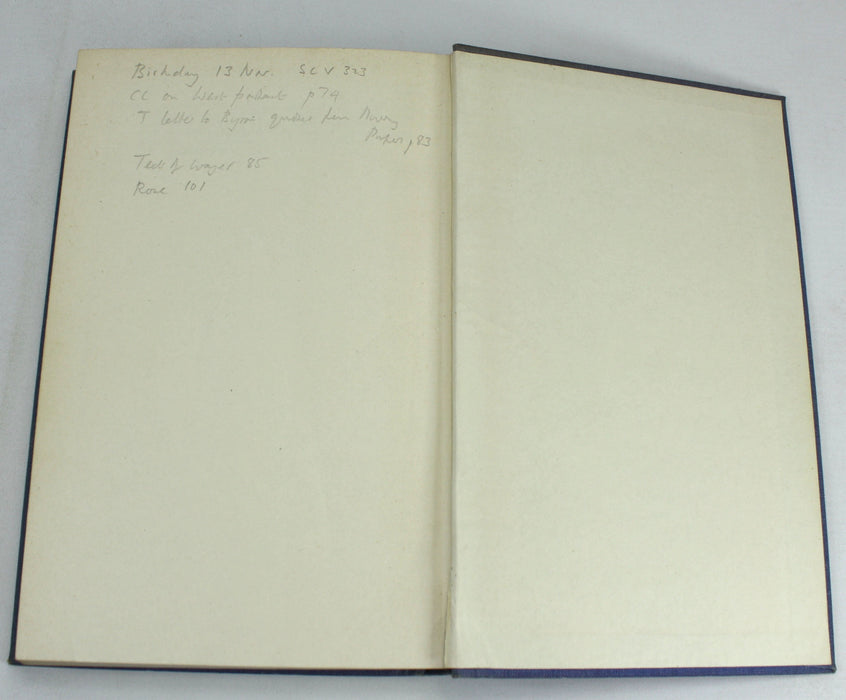 Birthday 13 Nov. SLV 323
CC on West p74
T letter to Byrne quoted from Murray
Papers, 83
Test of wager 85
Rose 101